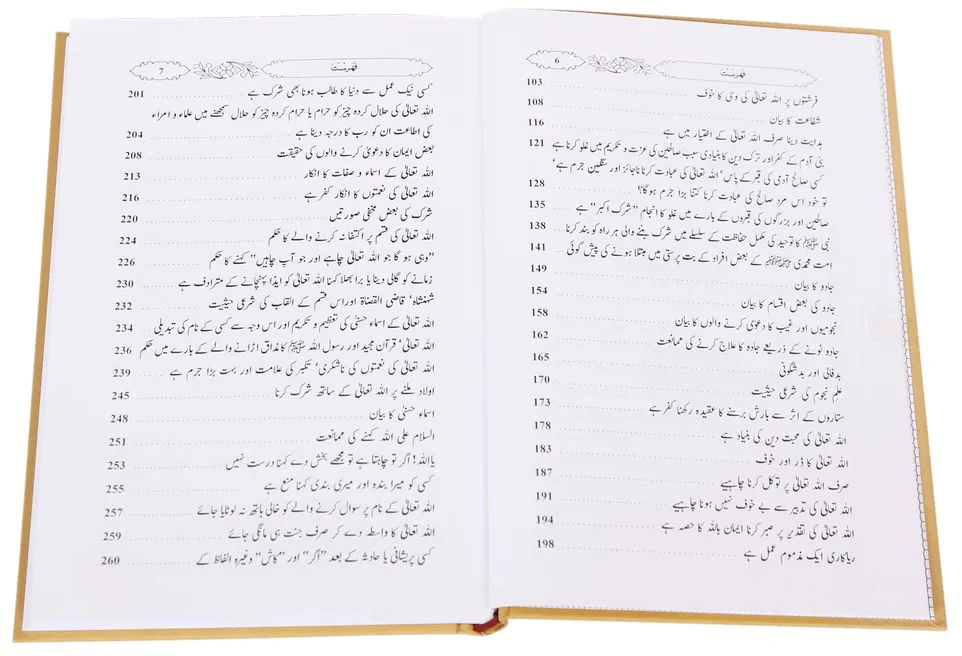 فہرست 6
فرشتوں پر اللہ تعالیٰ کی وحی کا خوف 103
شفاعت کا بیان 108
ہدایت دینا صرف اللہ تعالیٰ کے اختیار میں ہے 116
بنی آدم کے کفر اور ترک دین کا بنیادی سبب صالحین کی عزت و تکریم میں غلو کرنا ہے 121
کسی صالح آدمی کی قبر کے پاس‘ اللہ تعالیٰ کی عبادت کرنا ناجائز اور سنگین جرم ہے‘
تو خود اس مرد صالح کی عبادت کرنا کتنا بڑا جرم ہو گا؟ 128
صالحین اور بزرگوں کی قبروں کے بارے میں غلو کا انجام ”شرک اکبر“ ہے 135
نبی ﷺ کا توحید کی مکمل حفاظت کے سلسلے میں شرک بننے والی ہر راہ کو بند کرنا 138
امت محمدی ﷺ کے بعض افراد کے بت پرستی میں مبتلا ہونے کی پیش گوئی 141
جادو کا بیان 149
جادو کی بعض اقسام کا بیان 154
نجومیوں اور غیب کا دعویٰ کرنے والوں کا بیان 158
جادو ٹونے کے ذریعے جادو کا علاج کرنے کی ممانعت 162
بدفالی اور بدشگونی 165
علم نجوم کی شرعی حیثیت 170
ستاروں کے اثر سے بارش برسنے کا عقیدہ رکھنا کفر ہے 173
اللہ تعالیٰ کی محبت دین کی بنیاد ہے 178
اللہ تعالیٰ کا ڈر اور خوف 183
صرف اللہ تعالیٰ پر توکل کرنا چاہیے 187
اللہ تعالیٰ کی تدبیر سے بے خوف نہیں ہونا چاہیے 191
اللہ تعالیٰ کی تقدیر پر صبر کرنا ایمان باللہ کا حصہ ہے 194
ریاکاری ایک مذموم عمل ہے 198
فہرست 7
کسی نیک عمل سے دنیا کا طالب ہونا بھی شرک ہے 201
اللہ تعالیٰ کی حلال کردہ چیز کو حرام یا حرام کردہ چیز کو حلال سمجھنے میں علماء و امراء
کی اطاعت ان کو رب کا درجہ دینا ہے 204
بعض ایمان کا دعویٰ کرنے والوں کی حقیقت 208
اللہ تعالیٰ کے اسماء و صفات کا انکار 213
اللہ تعالیٰ کی نعمتوں کا انکار کفر ہے 216
شرک کی بعض مخفی صورتیں 220
اللہ تعالیٰ کی قسم پر اکتفا نہ کرنے والے کا حکم 224
”وہی ہو گا جو اللہ تعالیٰ چاہے اور جو آپ چاہیں“ کہنے کا حکم 226
زمانے کو گالی دینا یا برا بھلا کہنا اللہ تعالیٰ کو ایذا پہنچانے کے مترادف ہے 230
شہنشاہ‘ قاضی القضاۃ اور اس قسم کے القاب کی شرعی حیثیت 232
اللہ تعالیٰ کے اسماء حسنیٰ کی تعظیم و تکریم اور اس وجہ سے کسی کے نام کی تبدیلی 234
اللہ تعالیٰ‘ قرآن مجید اور رسول اللہ ﷺ کا مذاق اڑانے والے کے بارے میں حکم 236
اللہ تعالیٰ کی نعمتوں کی ناشکری‘ تکبر کی علامت اور بہت بڑا جرم ہے 239
اولاد ملنے پر اللہ تعالیٰ کے ساتھ شرک کرنا 245
اسماء حسنیٰ کا بیان 248
السلام علی اللہ کہنے کی ممانعت 251
یا اللہ! اگر تو چاہتا ہے تو مجھے بخش دے کہنا درست نہیں 253
کسی کو میرا بندہ اور میری بندی کہنا منع ہے 255
اللہ تعالیٰ کے نام پر سوال کرنے والے کو خالی ہاتھ نہ لوٹایا جائے 257
اللہ تعالیٰ کا واسطہ دے کر صرف جنت ہی مانگی جائے 259
کسی پریشانی یا حادثہ کے بعد ”اگر“ اور ”کاش“ وغیرہ الفاظ کے 260